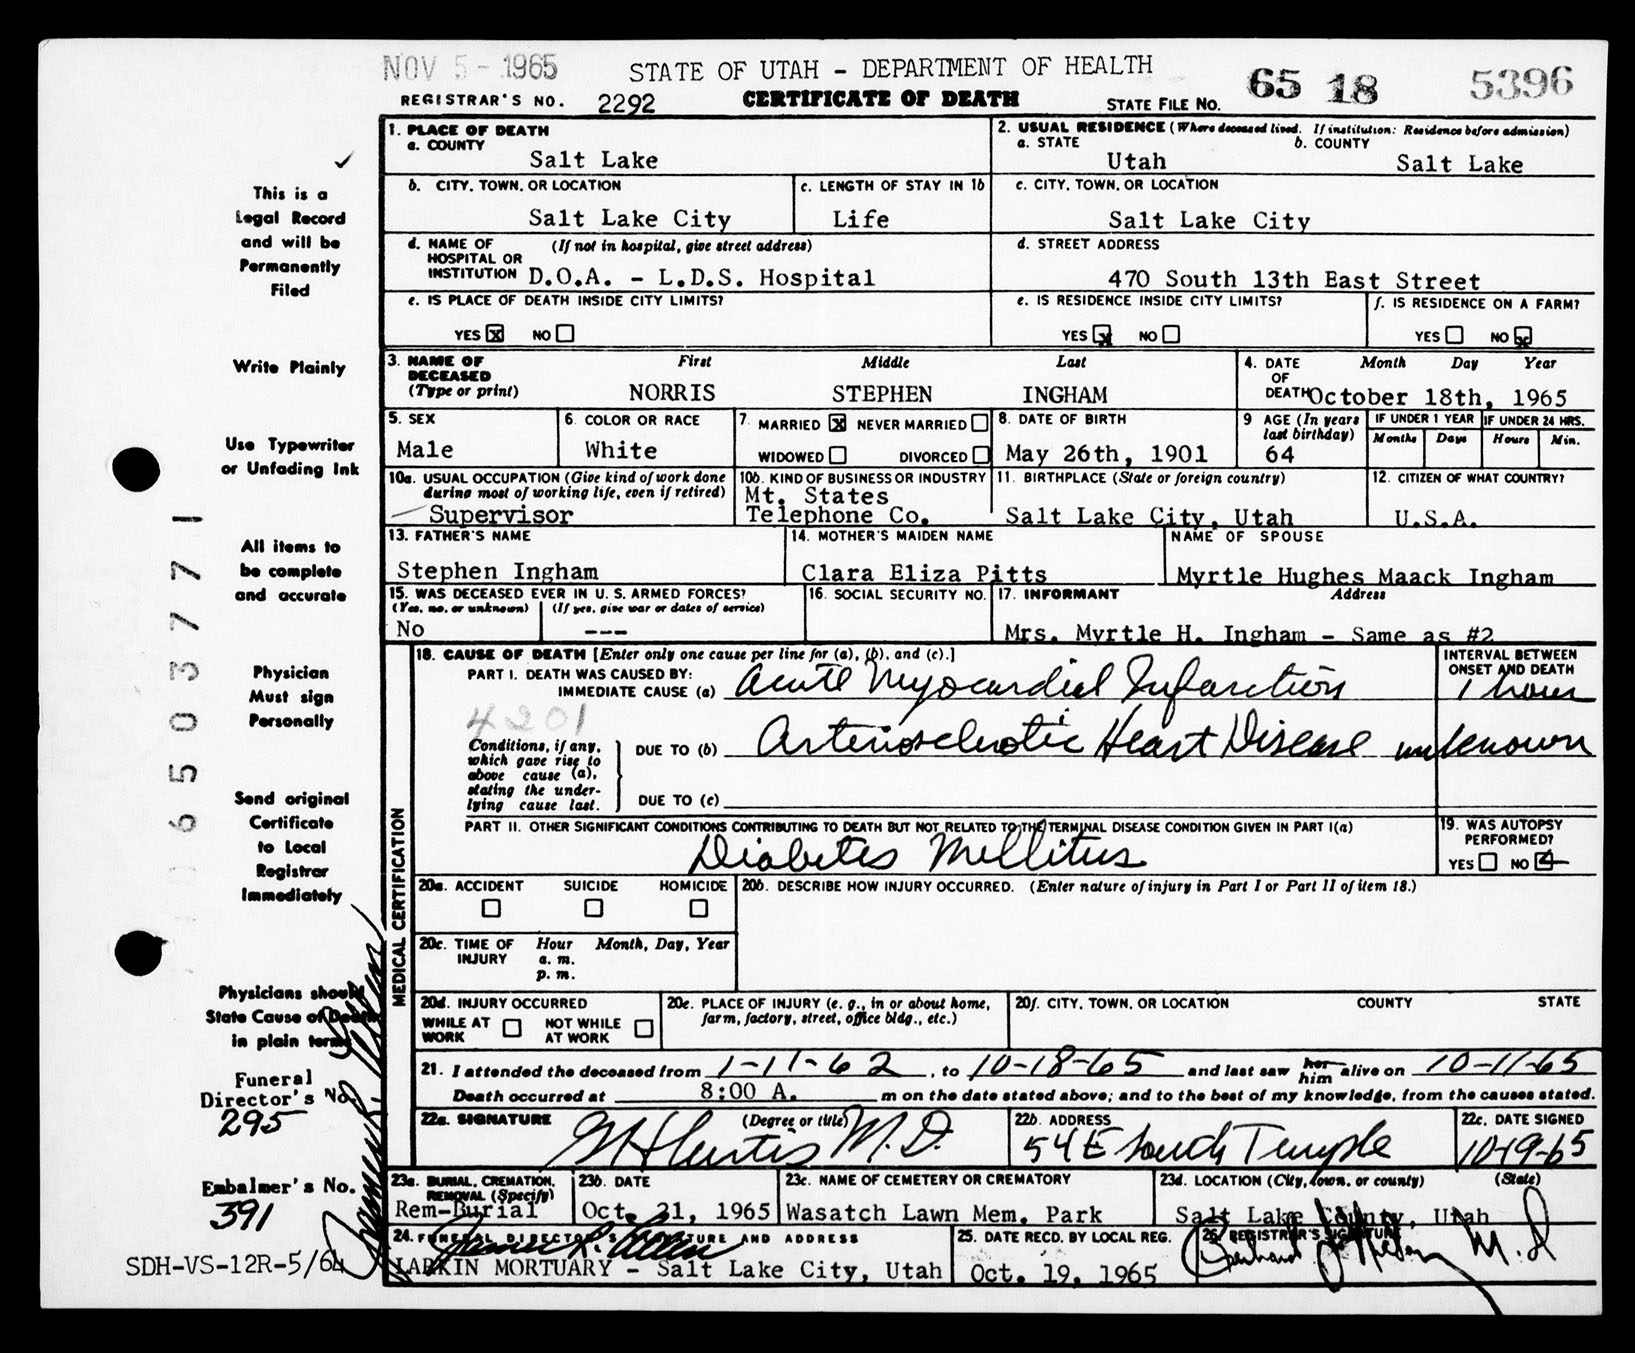 NOV 5 - 1965
STATE OF UTAH - DEPARTMENT OF HEALTH
65 18 5396
REGISTRAR'S NO. 2292 CERTIFICATE OF DEATH STATE FILE NO.
1. PLACE OF DEATH
a. COUNTY
Salt Lake
2. USUAL RESIDENCE (Where deceased lived. If institution: Residence before admission)
a. STATE b. COUNTY
Utah Salt Lake
b. CITY, TOWN, OR LOCATION
Salt Lake City
c. LENGTH OF STAY IN 1b
Life
c. CITY, TOWN, OR LOCATION
Salt Lake City
d. NAME OF HOSPITAL OR INSTITUTION (If not in hospital, give street address)
D.O.A. - L.D.S. Hospital
d. STREET ADDRESS
470 South 13th East Street
e. IS PLACE OF DEATH INSIDE CITY LIMITS?
YES X NO
e. IS RESIDENCE INSIDE CITY LIMITS?
YES X NO
f. IS RESIDENCE ON A FARM?
YES NO X
3. NAME OF DECEASED (Type or print)
First Middle Last
NORRIS STEPHEN INGHAM
4. DATE OF DEATH
Month Day Year
October 18th, 1965
5. SEX
Male
6. COLOR OR RACE
White
7. MARRIED X NEVER MARRIED
WIDOWED DIVORCED
8. DATE OF BIRTH
May 26th, 1901
9 AGE (In years last birthday)
64
IF UNDER 1 YEAR IF UNDER 24 HRS.
Months Days Hours Min.
10a. USUAL OCCUPATION (Give kind of work done during most of working life, even if retired)
Supervisor
10b. KIND OF BUSINESS OR INDUSTRY
Mt. States
Telephone Co.
11. BIRTHPLACE (State or foreign country)
Salt Lake City, Utah
12. CITIZEN OF WHAT COUNTRY?
U.S.A.
13. FATHER'S NAME
Stephen Ingham
14. MOTHER'S MAIDEN NAME
Clara Eliza Pitts
NAME OF SPOUSE
Myrtle Hughes Maack Ingham
15. WAS DECEASED EVER IN U. S. ARMED FORCES?
(Yes, no, or unknown) (If yes, give war or dates of service)
No ---
16. SOCIAL SECURITY NO.
17. INFORMANT Address
Mrs. Myrtle H. Ingham - Same as #2
MEDICAL CERTIFICATION
18. CAUSE OF DEATH [Enter only one cause per line for (a), (b), and (c).]
INTERVAL BETWEEN ONSET AND DEATH
PART I. DEATH WAS CAUSED BY:
IMMEDIATE CAUSE (a) Acute Myocardial Infarction 1 hour
4201
Conditions, if any, which gave rise to above cause (a), stating the underlying cause last.
DUE TO (b) Arteriosclerotic Heart Disease unknown
DUE TO (c)
PART II. OTHER SIGNIFICANT CONDITIONS CONTRIBUTING TO DEATH BUT NOT RELATED TO THE TERMINAL DISEASE CONDITION GIVEN IN PART I(a)
Diabetes Mellitus
19. WAS AUTOPSY PERFORMED?
YES NO
20a. ACCIDENT SUICIDE HOMICIDE
20b. DESCRIBE HOW INJURY OCCURRED. (Enter nature of injury in Part I or Part II of item 18.)
20c. TIME OF INJURY Hour Month, Day, Year
a. m.
p. m.
20d. INJURY OCCURRED
WHILE AT WORK NOT WHILE AT WORK
20e. PLACE OF INJURY (e. g., in or about home, farm, factory, street, office bldg., etc.)
20f. CITY, TOWN, OR LOCATION COUNTY STATE
21. I attended the deceased from 1-11-62, to 10-18-65 and last saw her him alive on 10-11-65
Death occurred at 8:00 A. m on the date stated above; and to the best of my knowledge, from the causes stated.
22a. SIGNATURE (Degree or title)
M.D.
22b. ADDRESS
54 E South Temple
22c. DATE SIGNED
10-19-65
23a. BURIAL, CREMATION, REMOVAL (Specify)
Rem-Burial
23b. DATE
Oct. 21, 1965
23c. NAME OF CEMETERY OR CREMATORY
Wasatch Lawn Mem. Park
23d. LOCATION (City, town, or county) (State)
Salt Lake County, Utah
24. FUNERAL DIRECTOR'S SIGNATURE AND ADDRESS
LARKIN MORTUARY - Salt Lake City, Utah
25. DATE RECD. BY LOCAL REG.
Oct. 19, 1965
26. REGISTRAR'S SIGNATURE
M.D
This is a
Legal Record
and will be
Permanently
Filed
Write Plainly
Use Typewriter
or Unfading Ink
All items to
be complete
and accurate
Physician
Must sign
Personally
Send original
Certificate
to Local
Registrar
Immediately
Physicians should
State Cause of Death
in plain terms
Funeral
Director's No.
295
Embalmer's No.
391
SDH-VS-12R-5/64
6503771